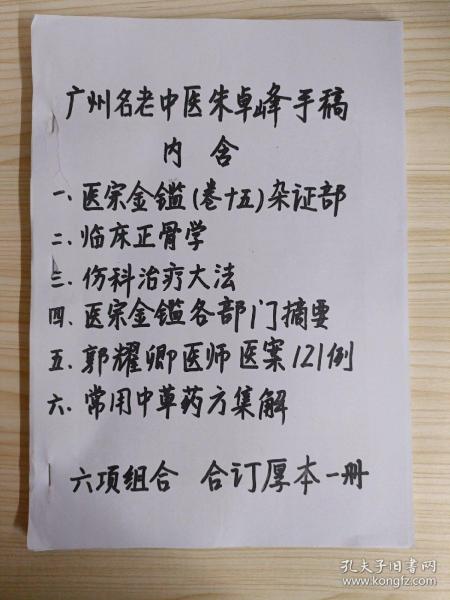 广州名老中医朱卓峰手稿
内含
一、医宗金鑑(卷十五)杂证部
二、临床正骨学
三、伤科治疗大法
四、医宗金鑑各部门摘要
五、郭耀卿医师医案121例
六、常用中草药方集解
六项组合 合订厚本一册
孔夫子旧书网
www.kongfz.com